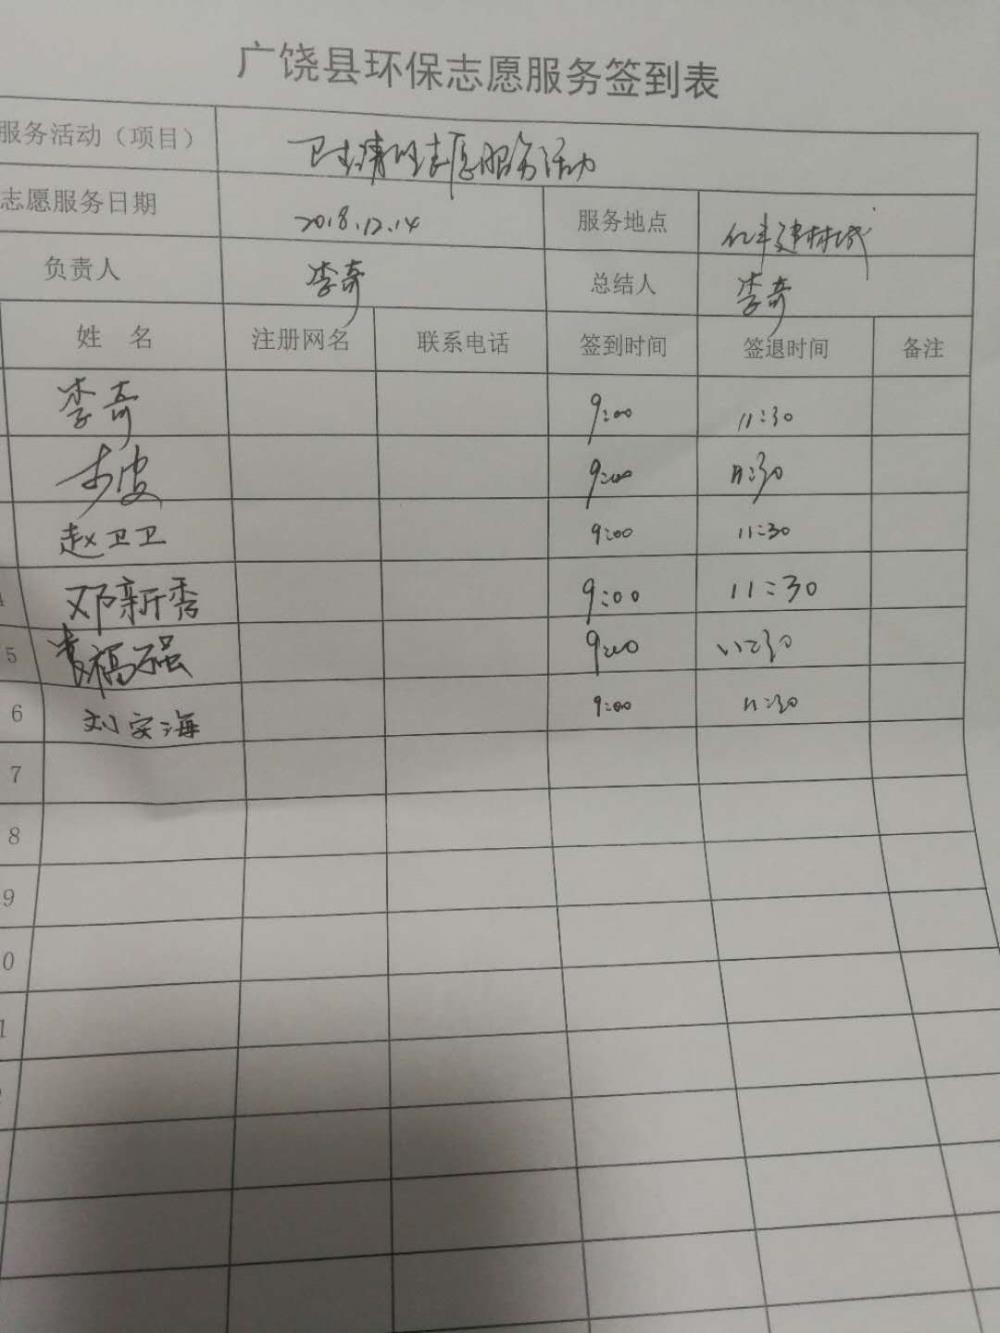 广饶县环保志愿服务签到表
服务活动（项目） 卫生清理志愿服务活动
志愿服务日期 2018.12.14 服务地点 亿丰建材城
负责人 李奇 总结人 李奇
姓 名 注册网名 联系电话 签到时间 签退时间 备注
李奇 9:00 11:30
9:00 11:30
赵卫卫 9:00 11:30
4 邓新秀 9:00 11:30
5 福强 9:00 11:30
6 刘安海 9:00 11:30
7
8
9
0
1
2